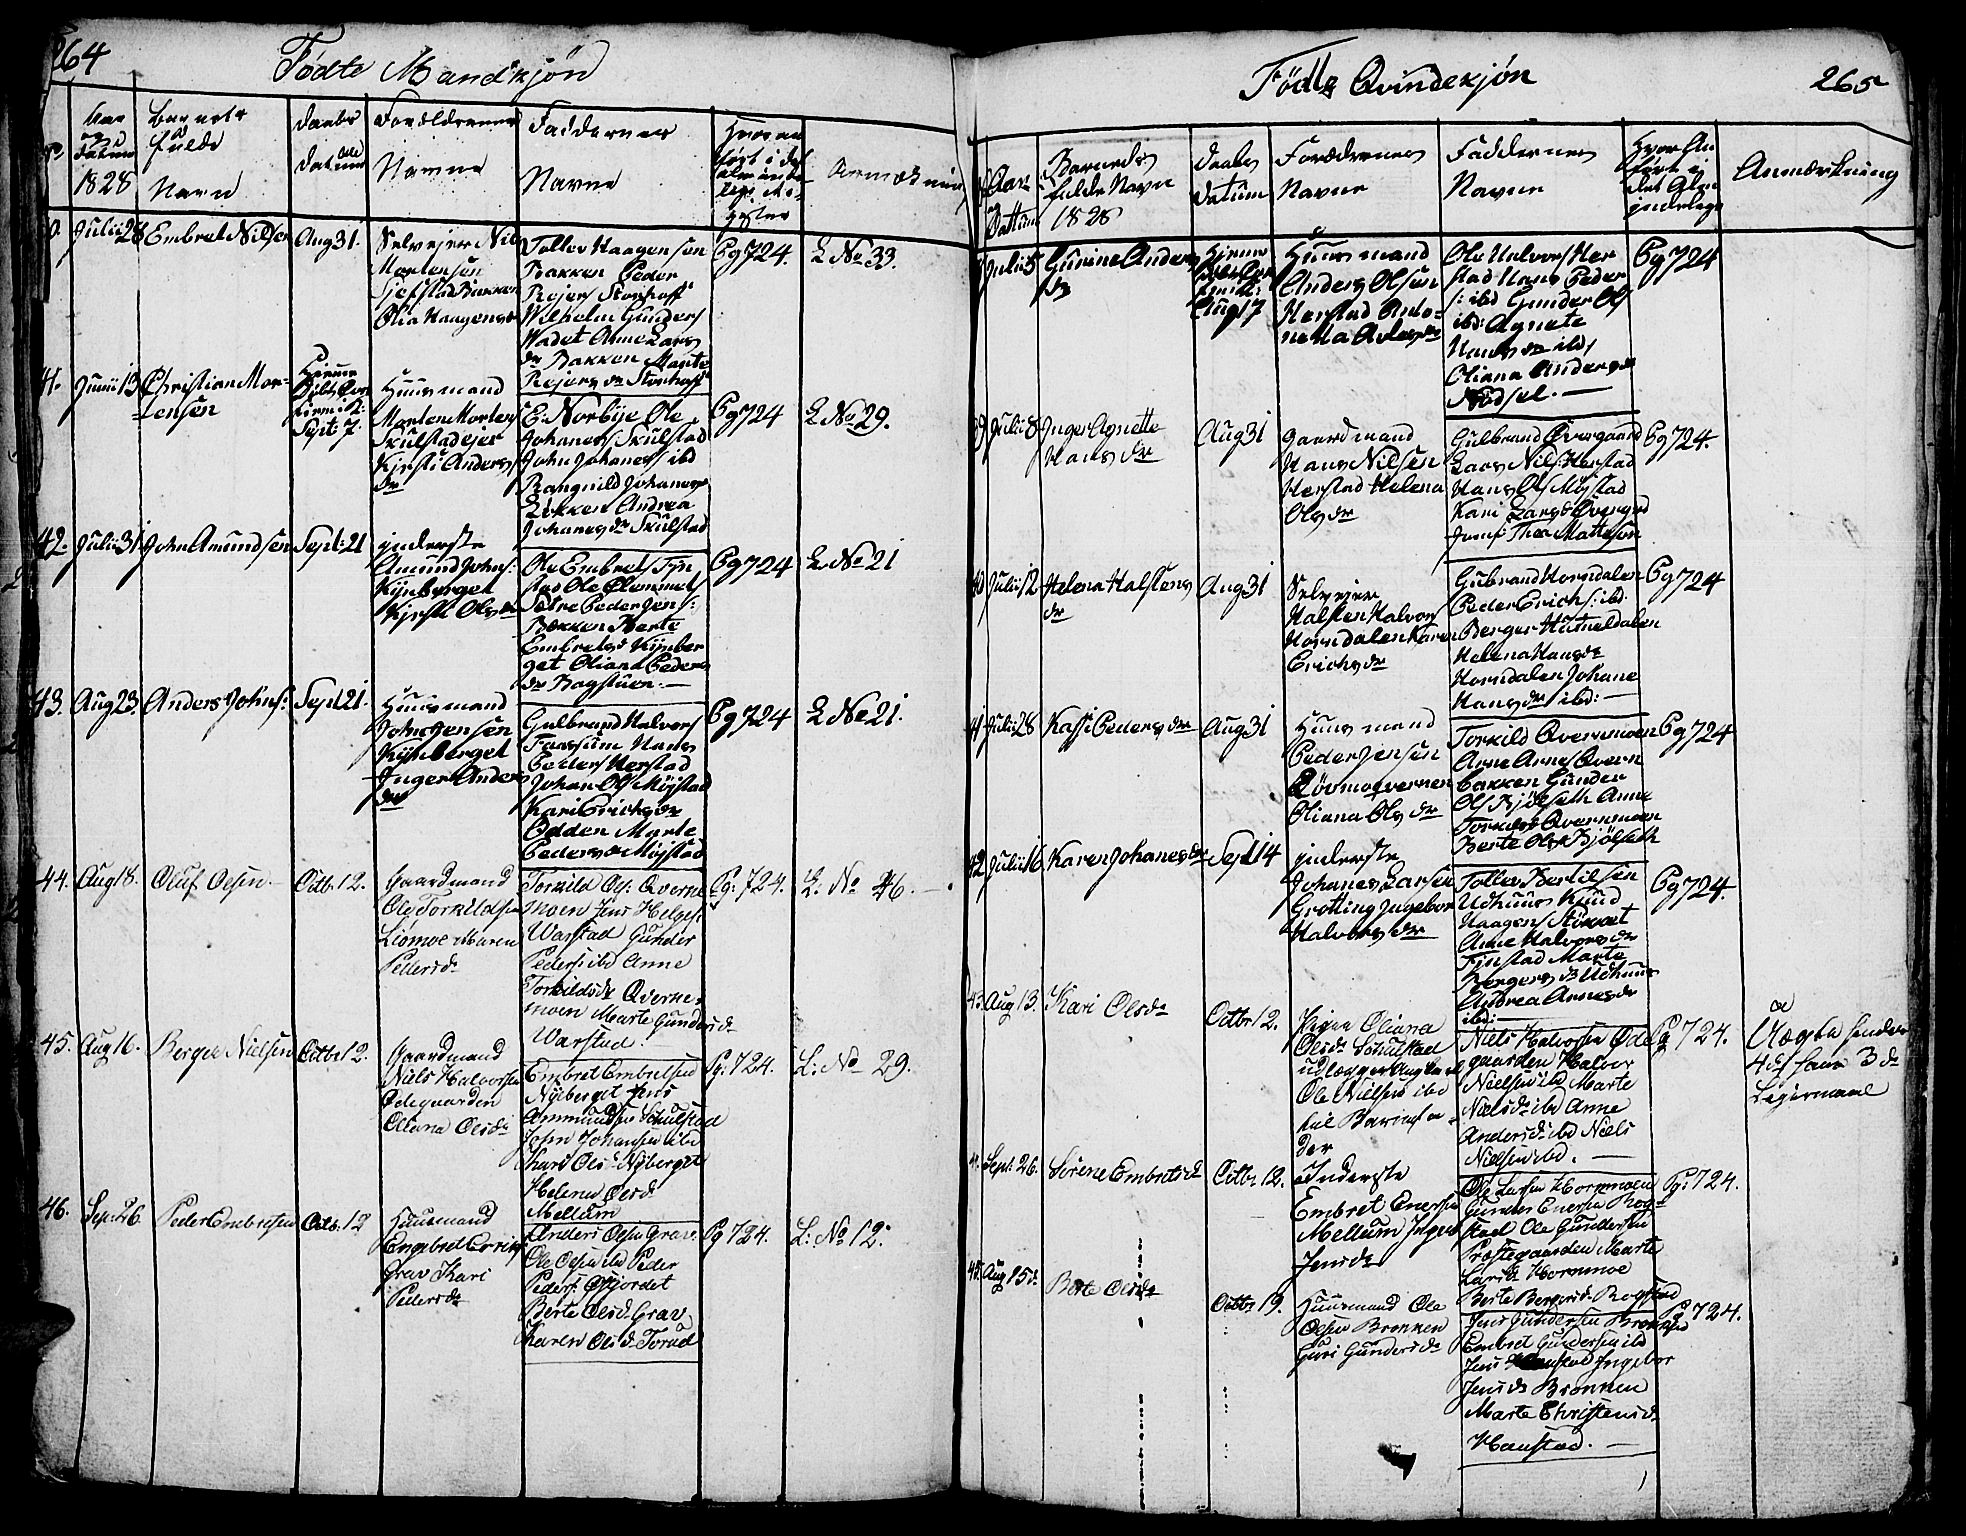 264
Födte Mandkjön
Aar og Datum 1828
Barnets fulde Navn
Daabs Datum
Forældrenes Navne
Faddernes Navne
Hvor anført i det almindelige Register
Anmærkning
Julii 28 Embret Nilsen Aug 31.
Selvejer Nils
Mortensen
Sjefstad Bakken
Olia Haagensdr
Tollev Haagensen
Bakken Peder
Rejers Storhoff
Wilhelm Gunders
Wadet Anne Lars
dr Bakken Marte
Rejers dr Storhoff
Pg 724. L No 33.
41. Junii 13 Christian Mor-
tensen
Hjemme
Døbt Con
firmit:
Sept: 7.
Huusmand
Morten Mortens
Skulstadejer
Kjersti Anders
dr
E: Norbye Ole
Johanes Skulstad
John Johanes ibd
Rangnild Johanes
Løkken Andrea
Johanes dr Skulstad
Pg 724 L No 29.
42. Julii 31 John Amundsen Sept: 21
inderste
Amund Johns:
Kynberget
Kjersti Olsdr
Ole Embrets Fyn
stad Ole Clemmets
Sætre Peder Jens:
Bakken Berte
Embretsd Kynber
get Oliana Peders
dr Bagstuen. —
Pg 724 L No 21
43. Aug 23. Anders Johns: Sept 21.
Huusmand
John Jensen
Kynberget
Inger Anders
dr
Gulbrand Halvors
Faarsum Hans
Peders Herstad
Johan Ols Møjstad
Kari Erichsdr
Odden Marte
Pedersdr Møjstad
Pg 724 L No 21.
44. Aug 18. Oluf Olsen. Octb: 12.
Gaardmand
Ole Torkildsen
Liömoe Maren
Pedersdr
Torkild Ols: Qverne
moen Jens Helges:
Warstad Gunder
Peders: ibd Anne
Torkildsdr Qverne-
moen Marte Gundersdr
Warstad. —
Pg: 724. L: No 46. —
45. Aug 16. Berger Nielsen Octbr 12.
Gaardmand
Niels Halvorsen
Ödegaarden
Oliana Olsdr
Embret Embretsen
Nyberget Jens
Ammundsen Schulstad
John Johansen ibd
Kari Olsd: Nyberget
Helene Olsdr
Mellum
Pg: 724. L: No 29.
46. Sep: 26. Peder Embretsen Octb: 12
Huusmand
Engebret Erichs:
Grav Kari
Pedersdr
Anders Olsen Grav.
Ole Olsen ibd Peder
Peders: Ofjordet
Berte Olsd: Grav
Karen Olsd: Torud
Pg 724. L: No 12.
Födte Qvindekjön 265
Aar og Dattum
Barneds fulde Navn 1828
Daabs Datum
Forældrenes Navne
Faddernes Navne
Hvor An
ført i
det Alm
indelege
Anmærkning
Julii 5 Gunine Anders
dr
Hjemme
Aug 17
Huusmand
Anders Olsen
Herstad Anto-
netta Andersdr
Ole Halvors Her
stad Hans Peder
s: ibd Gunder Ols
ibd: Agnete
Hans dr ibd,
Oliana Andersdr
Nödsel. —
Pg 724
39 Julii 8 Inger Agnette
Hans dr
Aug 31
Gaardmand
Hans Nilsen
Herstad Helena
Ols dr
Gulbrand Övergaard
Lars Nils: Herstad
Hans Ols Møjstad
Kari Larsd Övergrd
Jomf Thea Mattson
Pg 724.
40 Julii 12 Helena Halstens
dr
Aug 31
Selvejer
Halsten Halvors
Horndalen Karen
Erichsdr
Gubrand Horndalen
Peder Erichs: ibd.
Berger Hummeldalen
Helena Hansdr
Horndalen Johane
Hansdr ibd: —
Pg 724
41 Julii 28 Kassi Peders dr Aug 31
Huusmand
Peder Jensen
Rövmoqvernen
Oliana Ols dr
Torkild Qvernmoen
Arne Arnes Qvern
bakken Gunder
Ols Kjölseth Anne
Torkilsd Qvernmoen
Berte Olsd Kjölseth
Pg 724
42 Julii 16 Karen Johanesdr Sept 14
inderste
Johanes Larsen
Grotting Ingebor
Halvors dr
Tollev Bertilsen
Udhuus Knud
Haagens Störvat
Anne Halvorsdr
Fynstad Marte
Bergers dr Udhuus
Andrea Arnesdr
ibd: —
Pg 724.
43 Aug 13. Kari Olsdr Octbr 12.
Pigen Oliana
Olsdr Schulstad
udlægger Ungkarl
Ole Nielsen ibd
til Barnefa-
der
Niels Halvorsen Öde
gaarden Halvor
Nielsen ibd Marte
Nielsdr ibd Anne
Andersdr ibd Niels
Nielsen ibd. —
Pg 724.
Uægte hendes
4de hans 3de
Leiermaal
44 Sept: 26. Sörene Embretsd Octbr. 12.
Inderste
Embret Enersen
Mellum Ingeb
Jensdr
Ole Larsen Hornmoen
Gunder Enersen Rog-
stad Ole Gundersen
Præstegaarden Marte
Larsdr Hornmoe
Berte Bergersd: Rogstad
Pg: 724.
45. Aug 15d: Berte Olsdr Octbr 19.
Huusmand Ole
Olsen Brenken
Guri Gundersdr
Jens Gundersen Brenken
Embret Gundersen ibd
Jens Haustad Ingebor
Jensdr Brenken
Marte Christensdr
Haustad. —
Pg 724.